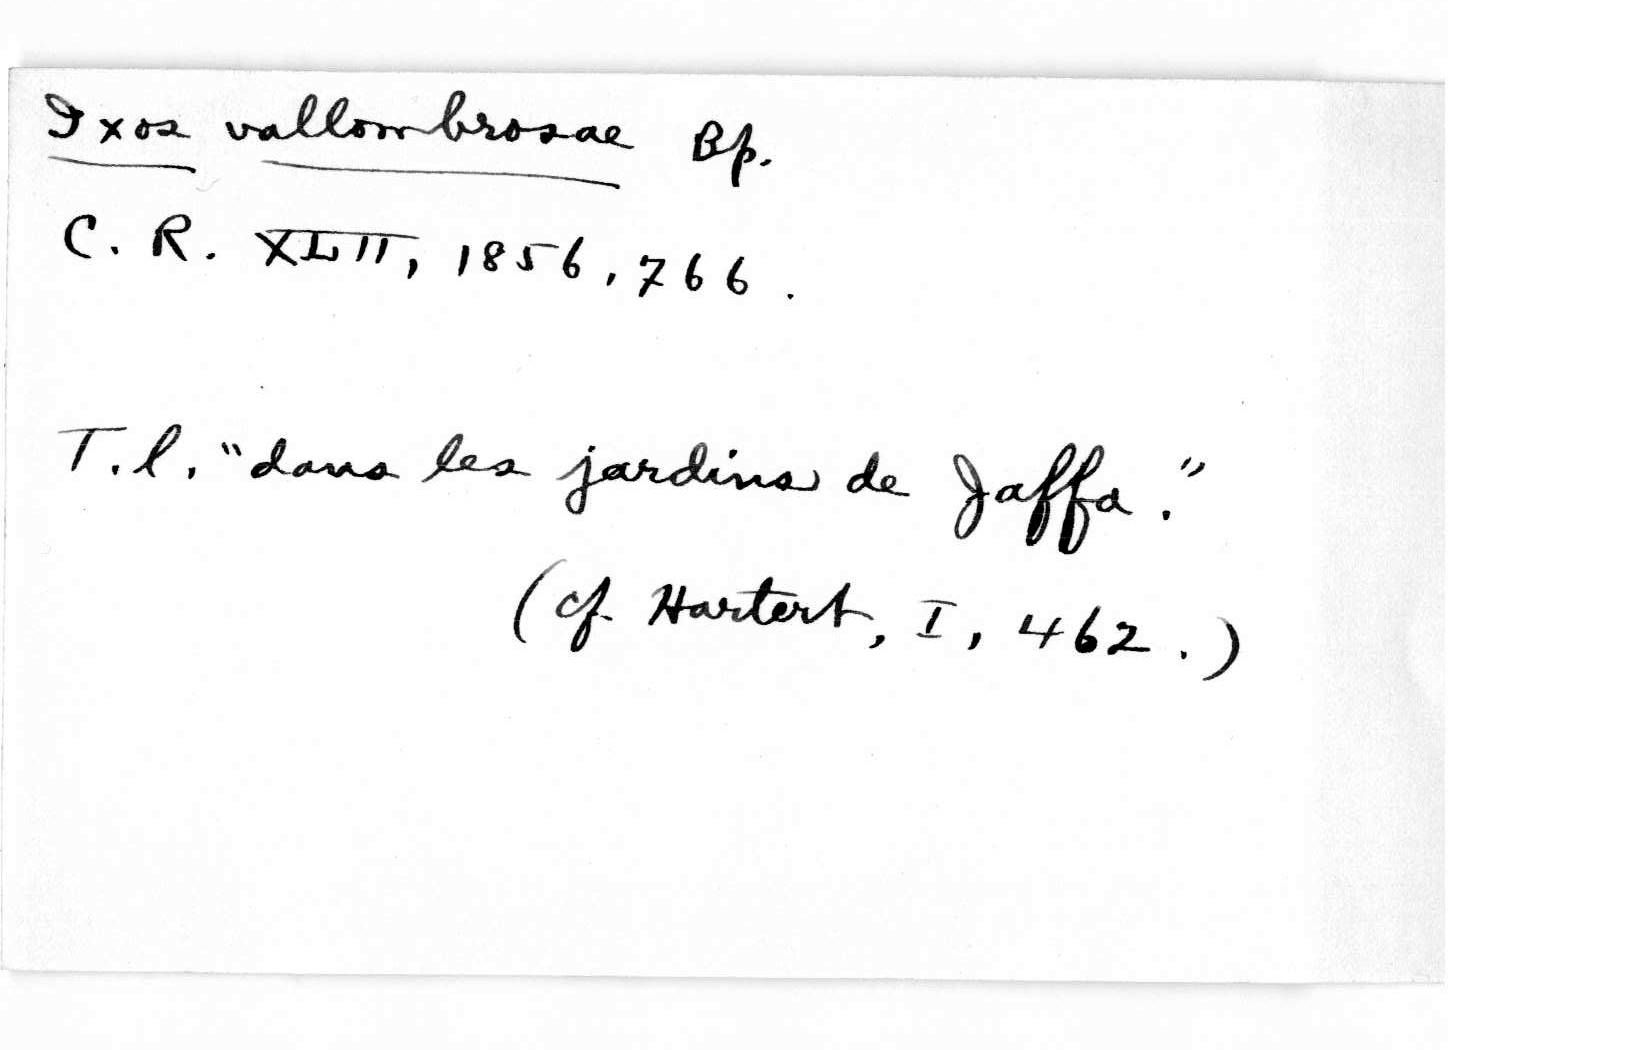 Ixos vallombrosae Bp.
C. R. XLII, 1856, 766.
T.l. "dans les jardins de Jaffa."
(cf. Hartert, I, 462.)